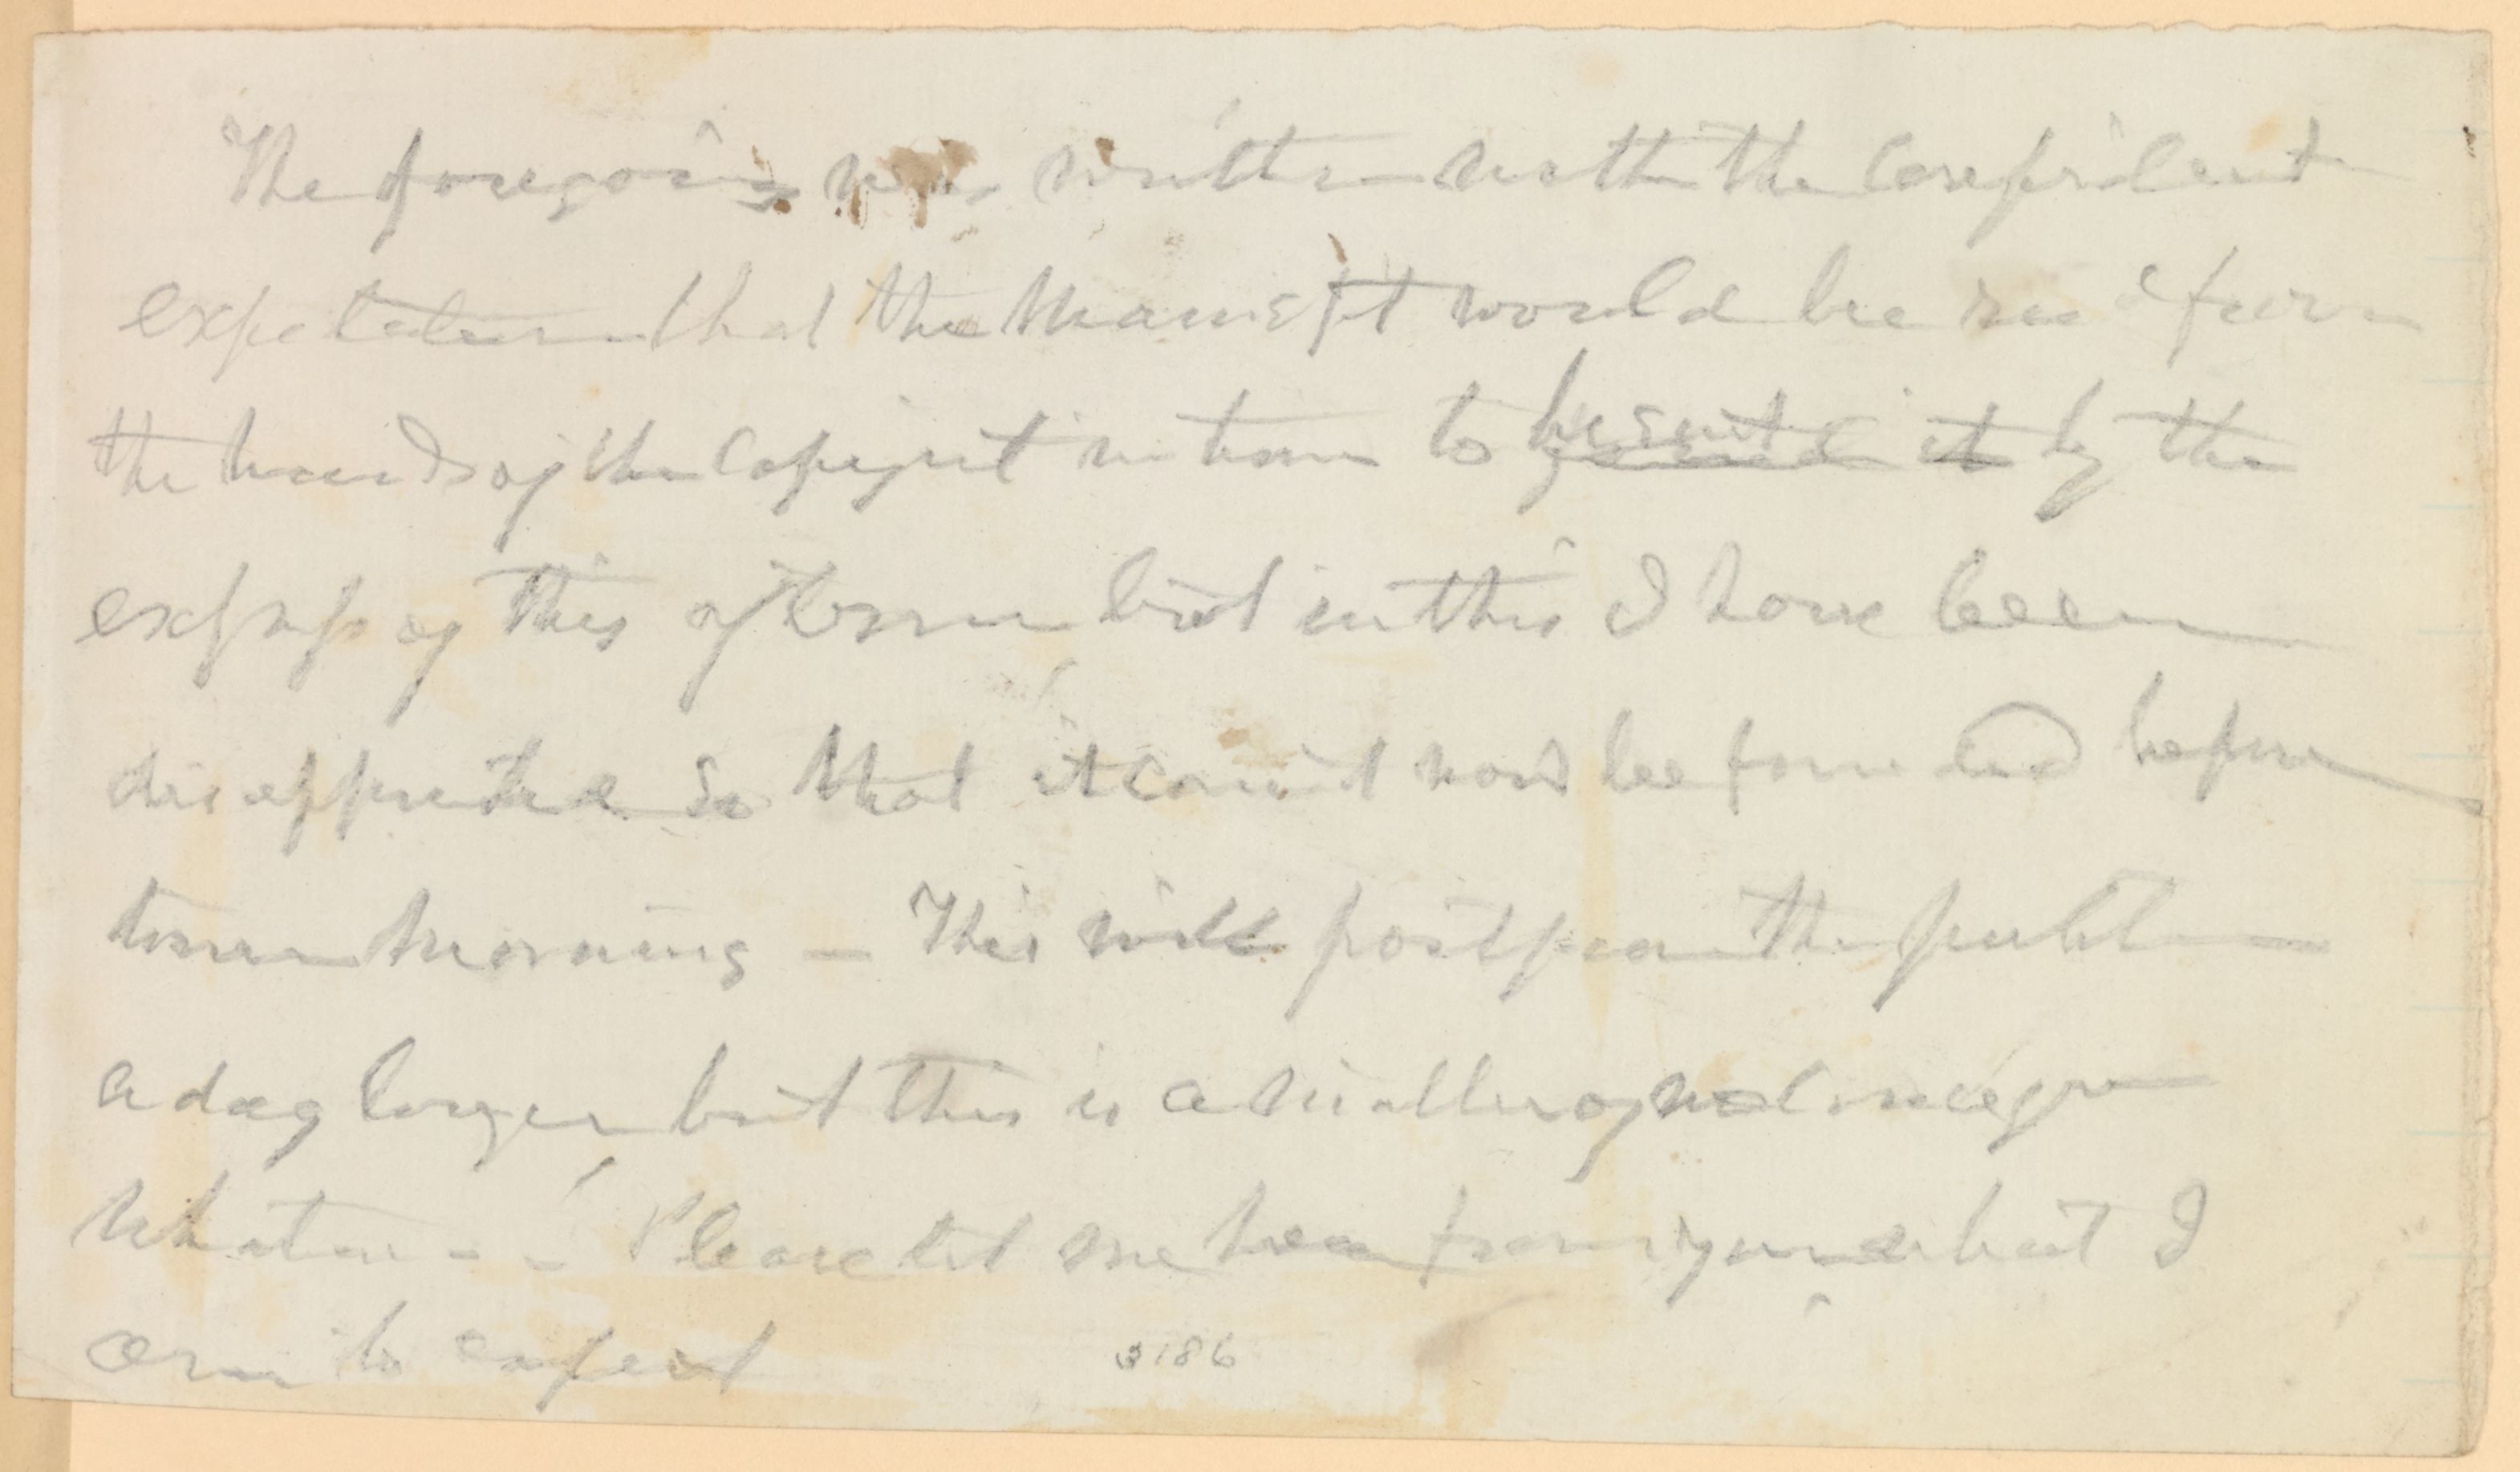 The foregoing was written with the confident
expectation that the Manuscpt would be rec'd from
the hands of the Copyist in time to be sent send it by the
express of this afternoon but in this I have been
disappointed so that it cannot now be forwarded before
tomorrow morning — This will postpone the publn
a day longer but this is a matter of no consequn
whatever - - Please let me hear from you what I
am to expect
3186